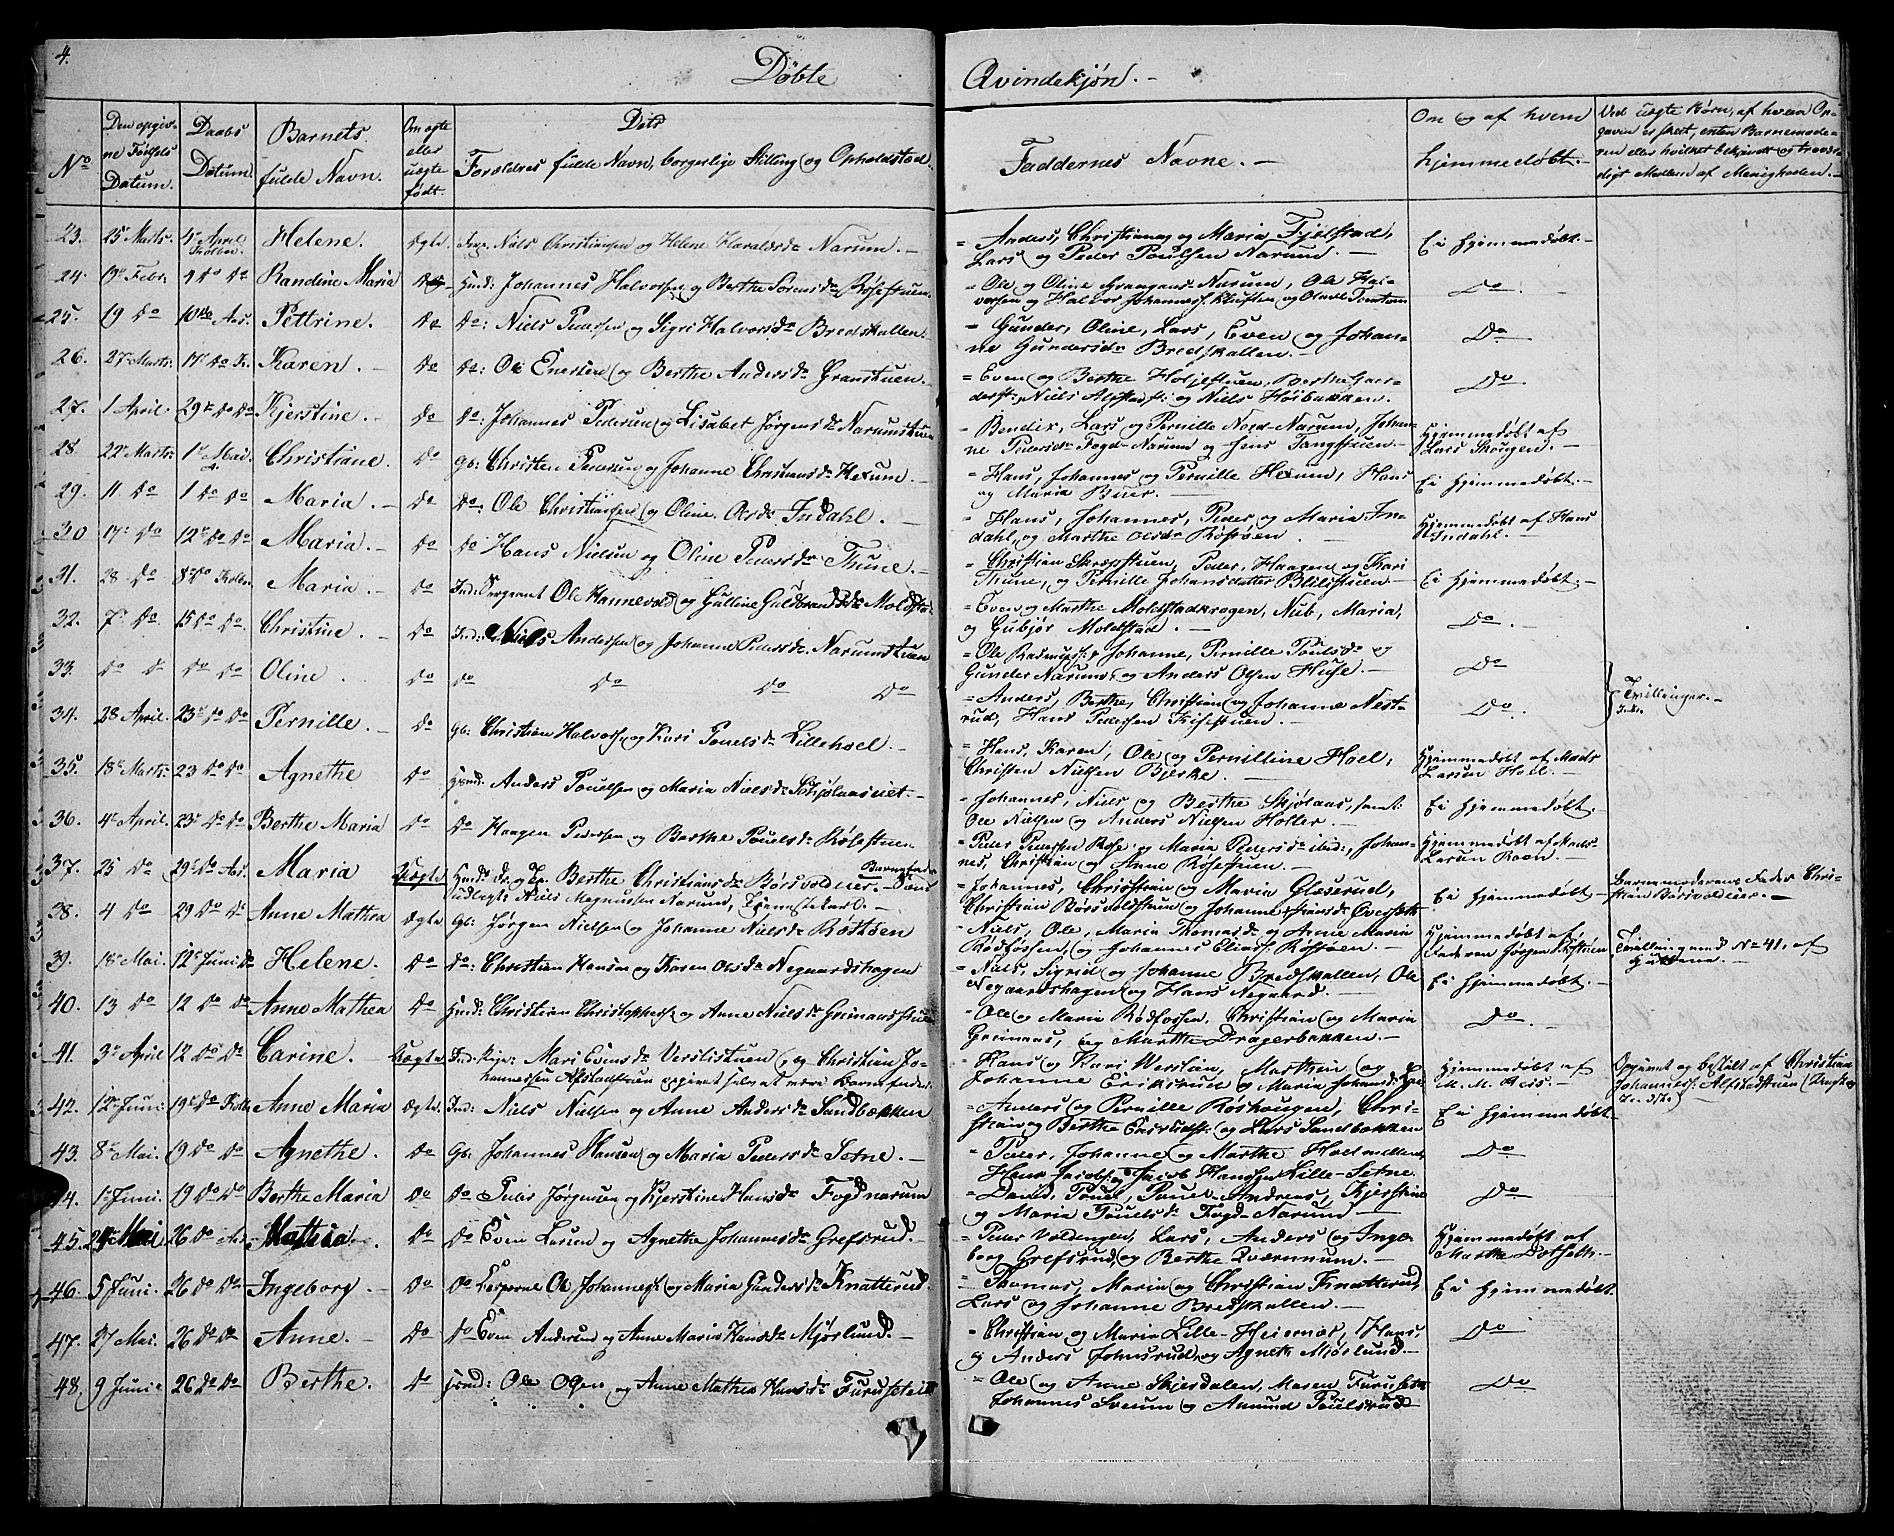 4.
Döbte Qvindekjøn. -
No
Den opgiv-
ne Fødsels
Datum.
Daabs
Datum
Barnets
fulde Navn.
Om ægte
eller
uægte
født.
Dets
Forældres fulde Navn, borgerlige Stilling og Opholdsted.
Faddernes Navne. -
Om og af hvem
hjemmedøbt. -
Ved uægte Børn, af hvem Op-
gaven er skeet, enten Barnemode-
ren eller hvilket bekjendt og trovær-
digt Medlem af Menigheden. -
23. 25 Marts. 4 April Kolbu. Helene. Ægte Niels Christiansen og Helene Haraldsd Narum. -
= Anders, Christiane og Maria Fjelstad,
Lars og Peder Poulsen Narum. -
Ei hjemmedøbt. -
24. 19 Febr: 9 Do Do Randine Maria Do Huusd: Johannes Halvorsen og Berthe Sorensd Røsestuen.
= Ole og Oline Narum, Ole Hal-
vorsen og Halvor Johanness.
Do
25. 19 Do 10 Do Aas. Pettrine. Do Do: Niels Pedersen og Sigri Halvorsd Bredskallen.
= Gunder, Oline, Lars, Even og Johan-
ne Gundersd Bredskallen. -
Do
26. 27 Marts: 17 Do Karen. - Do Do: Ole Enersen og Berthe Andersd Granstuen.
= Even og Berthe
og Niels Høibakken.
Do
27. 1 April. 29 Do Do Kjerstine. - Do Do: Johannes Pedersen og Lisabet Jørgensd Narumstuen
= Bendix, Lars og Pernille Nord-Narum, Johan-
ne Pedersd Fogd-Narum og Jens Tangstuen. -
Hjemmedøbt af
Lars Skougen. -
28. 22 Marts: 1 Mai. Christiane. Do Gb: Christen Pedersen og Johanne Christiansd Hexum. -
= Hans, Johannes og Pernille Hexum, Hans
og Maria Buer. -
Ei hjemmedøbt. -
29. 11 Do 1 Do Do Maria. - Do Do: Ole Christiansen og Oline Olsd Indahl. -
= Hans, Johannes, Peder og Maria In-
dahl, og Marthe Olsd Røstøen
Hjemmedøbt af Hans
Indahl. -
30. 17 Do 12 Do Do Maria. - Do Do Hans Nielsen og Oline Pedersd Thune. -
= Christian Skræpstuen, Peder, Haagen og Kari
Thune, og Pernille Johansdatter Bliliestuen. -
Ei hjemmedøbt. -
31. 28 Do 8 Do Kolbu. Maria. - Do Ind: Sergeant Ole Hannevold og Gulline Guldbrandsd Moldstad
= Even og Marthe Moldstadkrogen, Maria,
og Gubjør Moldstad. -
Do. -
32. 7 Do 15 Do Do. Christine. Do Ind: Niels Andersen og Johanne Pedersd Narumstuen
= Ole Johanne, Pernille Poulsd og
Gunder Narum, og Anders Olsen Huse. -
Do
33. Do Do Do Do Oline. Do Do Do Do Do
= Anders, Berthe, Christian og Johanne Nest-
rud, Hans Pedersen -
Do.
Tvillinger. -
34. 28 April. 23 Do Do Pernille. - Do Gb: Christian Halvorsen og Kari Pouelsd Lillehoel. -
= Hans, Karen, Ole og Pernilline Hoel,
Christen Nielsen Bjerke. -
Hjemmedøbt af Mads
Larsen Hoel. -
35. 18 Marts: 23 Do Do Agnethe Do Huusd: Anders Pouelsen og Maria Nielsd Skjølaaseiet. -
= Johannes, Niels og Berthe Skjølaas, samt
Ole Nielsen og Anders Nielsen Holler. -
Ei hjemmedøbt. -
36. 4 April. 23 Do Do Berthe Maria Do Do Haagen Pedersen og Berthe Pouelsd Røsestuen
= Peder Pedersen Røse og Maria Pedersd ibid:, Johan-
nes, Christian og Anne Røsestuen. -
Hjemmedøbt af Mads
Larsen
37. 25 Do 29 Do Aas. Maria Uægte Huusd: Berthe Christiansd Børsvoldeiet. - Barnefader
udlagt: Niels Magnussen Narum, Tjenestekarl. -
= Johannes, Christian og Maria Glæserud,
Christian Børsvoldstuen og Johanne
Ei hjemmedøbt. -
Barnemoderens Fader Chri-
stian Børsvoldeiet. -
38. 4 Do 29 Do Do Anne Mathea Ægte Gb: Jørgen Nielsen og Johanne Nielsd Røstøen
= Niels, Ole, Maria Thomasd og Anne Maria
Rødfossen, og Johannes Eliass. Røstøen. -
Hjemmedøbt af
Faderen Jørgen Røstøen
39. 18 Mai. 12 Juni Do Helene. Do Do: Christian Hansen og Karen Olsd Negaardshagen
= Niels, Sigrid og Johanne Bredskallen, Ole
Negaardshagen og Hans Negaard. -
Ei hjemmedøbt. -
Tvilling med No 41, af
Guttene. -
40. 13 Do 12 Do Do Anne Mathea Do Huusd: Christian Christophers. og Anne Nielsd Greimansstuen
= Ole og Maria Rødfossen, Christian og Maria
og Marthe Dragerbakken. -
Do. -
41. 3 April 12 Do Do Carine. - Uægte Ind: Pige: Mari Evensd Verslistuen, og Christian Jo-
hannessen Alfstadstuen opgivet selv at være Barnefader.
= Hans og Kari Mathias og
Johanne og Maria Johansd
Hjemmedøbt af
Opgivet og bestilt af Christian
Johanness. Alfstadstuen
42. 12 Juni 19 Do Kolbu Anne Maria Ægte Ind: Niels Nielsen og Anne Andersd Sandbækken
= Anders og Pernille Røshougen, Chri-
stian og Berthe og Lars Sandbækken
Ei hjemmedøbt. -
43. 8 Mai. 19 Do Do Agnethe. Do Gb: Johannes Hansen og Maria Pedersd Setne. -
= Peder, Johanne og Marthe
Jacob Hansen Nille-Setne
Do
44. 1 Juni. 19 Do Do Berthe Maria Do Do Peder Jørgensen og Kjerstine Hansd Fogdnarum
= David, Pouel, Pouel Andreas, Kjerstine
og Maria Pouelsd Fogd-Narum. -
Do
45. 24 Mai 26 Do Aas. Mathea. - Do Do Even Larsen og Agnethe Johannesd Grefsrud. -
= Peder Voldengen, Lars, Anders og Inge-
borg Grefsrud, og Berthe Qværnum. -
Hjemmedøbt af
Marthe
46. 5 Juni. 26 Do Do Ingeborg. - Do Do Ole Johannes. og Maria Gundersd Knatterud. -
= Thomas, Maria og Christian Knatterud,
Lars og Johanne Bredskallen. -
Ei hjemmedøbt.
47. 27 Mai. 26 Do Do Anne. - Do Do Even Andersen og Anne Maria Hansd Mjørlund. -
= Christian og Maria Lille-Heiernæs, Hans,
og Anders Johnsrud, og Agnethe Mjørlund. -
Do
48. 9 Juni. 26 Do Do Berthe. Do Huusd: Ole Olsen og Anne Mathea Hansd Furuseteiet
= Ole og Anne Skjesdalen, Maren Furuset
Johannes Sveum og Amund Poulsrud
Do